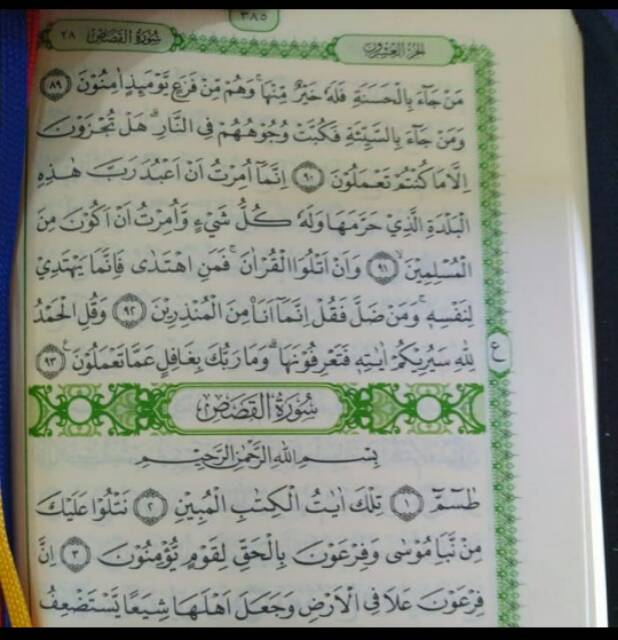 ٣٨٥
الجزء العشرون
سورة القصص ٢٨
مَنْ جَآءَ بِالْحَسَنَةِ فَلَهٗ خَيْرٌ مِّنْهَاۚ وَهُمْ مِّنْ فَزَعٍ يَّوْمَىِٕذٍ اٰمِنُوْنَ ٨٩
وَمَنْ جَآءَ بِالسَّيِّئَةِ فَكُبَّتْ وُجُوْهُهُمْ فِى النَّارِۗ هَلْ تُجْزَوْنَ
اِلَّا مَا كُنْتُمْ تَعْمَلُوْنَ ٩٠ اِنَّمَآ اُمِرْتُ اَنْ اَعْبُدَ رَبَّ هٰذِهِ
الْبَلْدَةِ الَّذِيْ حَرَّمَهَا وَلَهٗ كُلُّ شَيْءٍ وَّاُمِرْتُ اَنْ اَكُوْنَ مِنَ
الْمُسْلِمِيْنَۙ ٩١ وَاَنْ اَتْلُوَا الْقُرْاٰنَۚ فَمَنِ اهْتَدٰى فَاِنَّمَا يَهْتَدِيْ
لِنَفْسِهٖۚ وَمَنْ ضَلَّ فَقُلْ اِنَّمَآ اَنَا۠ مِنَ الْمُنْذِرِيْنَ ٩٢ وَقُلِ الْحَمْدُ
لِلّٰهِ سَيُرِيْكُمْ اٰيٰتِهٖ فَتَعْرِفُوْنَهَاۗ وَمَا رَبُّكَ بِغَافِلٍ عَمَّا تَعْمَلُوْنَ ٩٣
ع
سُوْرَةُ الْقَصَصِ
بِسْمِ اللّٰهِ الرَّحْمٰنِ الرَّحِيْمِ
طٰسۤمّۤ ١ تِلْكَ اٰيٰتُ الْكِتٰبِ الْمُبِيْنِ ٢ نَتْلُوْا عَلَيْكَ
مِنْ نَّبَاِ مُوْسٰى وَفِرْعَوْنَ بِالْحَقِّ لِقَوْمٍ يُّؤْمِنُوْنَ ٣ اِنَّ
فِرْعَوْنَ عَلَا فِى الْاَرْضِ وَجَعَلَ اَهْلَهَا شِيَعًا يَّسْتَضْعِفُ